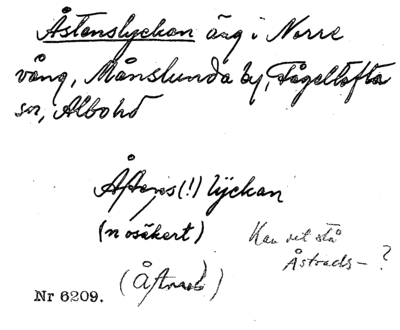 Åstenslyckan äng i Norre
vång, Månslunda by, Fågeltofta
sn, Albo hd
Åstens(!) lyckan
(n osäkert)
Kan det stå
Åstrads- ?
(Åstrad)
Nr 6209.